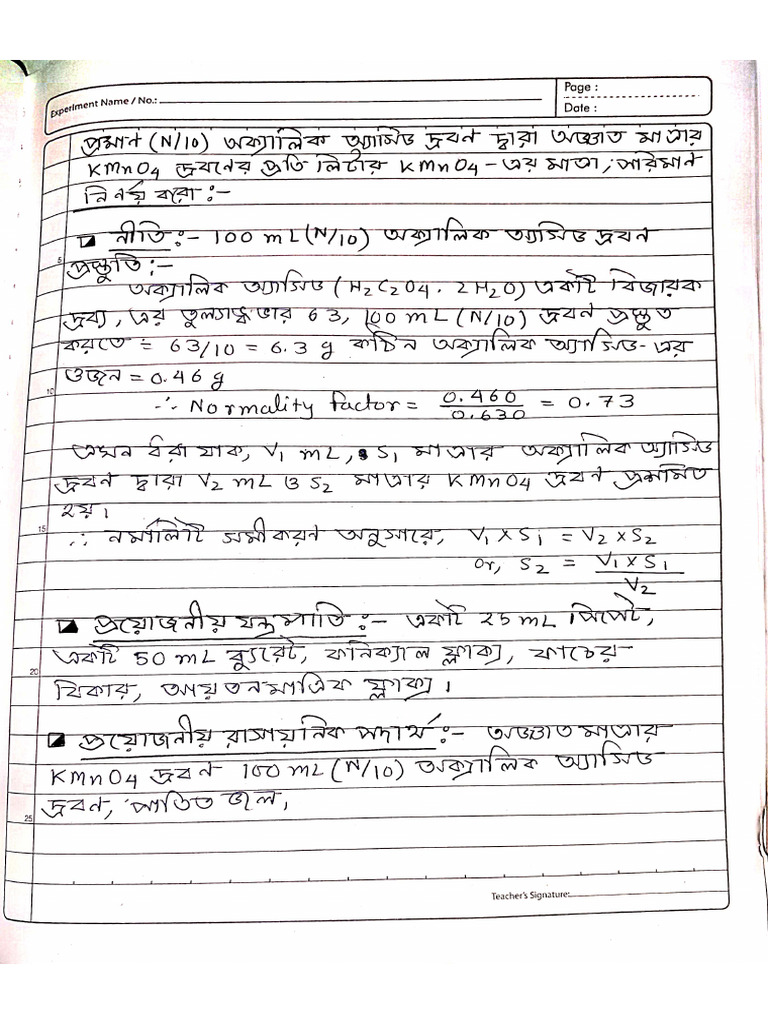 Experiment Name / No.:
Page :
Date :
প্রমান (N/10) অক্যালিক অ্যাসিড দ্রবন দ্বারা অজ্ঞাত মাত্রার
KMnO4 দ্রবনের প্রতি লিটার KMnO4-এর মাত্রা, পরিমান
নির্নয় করো :-
নীতি :- 100 mL (N/10) অক্যালিক অ্যাসিড দ্রবন
5
প্রস্তুতি :-
অক্যালিক অ্যাসিড (H2C2O4. 2H2O) একটি বিজারক
দ্রব্য, এর তুল্যাঙ্কভার 63, 100 mL (N/10) দ্রবন প্রস্তুত
করতে = 63/10 = 6.3 g কঠিন অক্যালিক অ্যাসিড-এর
10
ওজন = 0.46 g
∴ Normality factor = 0.460/0.630 = 0.73
এখন ধরা যাক, V1 mL, S1 মাত্রার অক্যালিক অ্যাসিড
দ্রবন দ্বারা V2 mL ও S2 মাত্রার KMnO4 দ্রবন প্রশমিত
হয়।
15
∴ নর্মালিটি সমীকরন অনুসারে, V1 × S1 = V2 × S2
or, S2 = V1 × S1 / V2
প্রয়োজনীয় যন্ত্রপাতি :- একটি 25 mL পিপেট,
একটি 50 mL ব্যুরেট, কনিক্যাল ফ্লাক্স, কাচের
20
বিকার, আয়তনমাত্রিক ফ্লাক্স।
প্রয়োজনীয় রাসায়নিক পদার্থ :- অজ্ঞাত মাত্রার
KMnO4 দ্রবন 100 mL (N/10) অক্যালিক অ্যাসিড
দ্রবন, পাতিত জল,
25
Teacher's Signature: